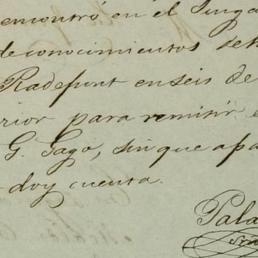 encontró en el Juzga
de conocimientos se h
Radepont en seis de
rior para remisir e
G. Gago, sin que apa
doy cuenta.
Pala